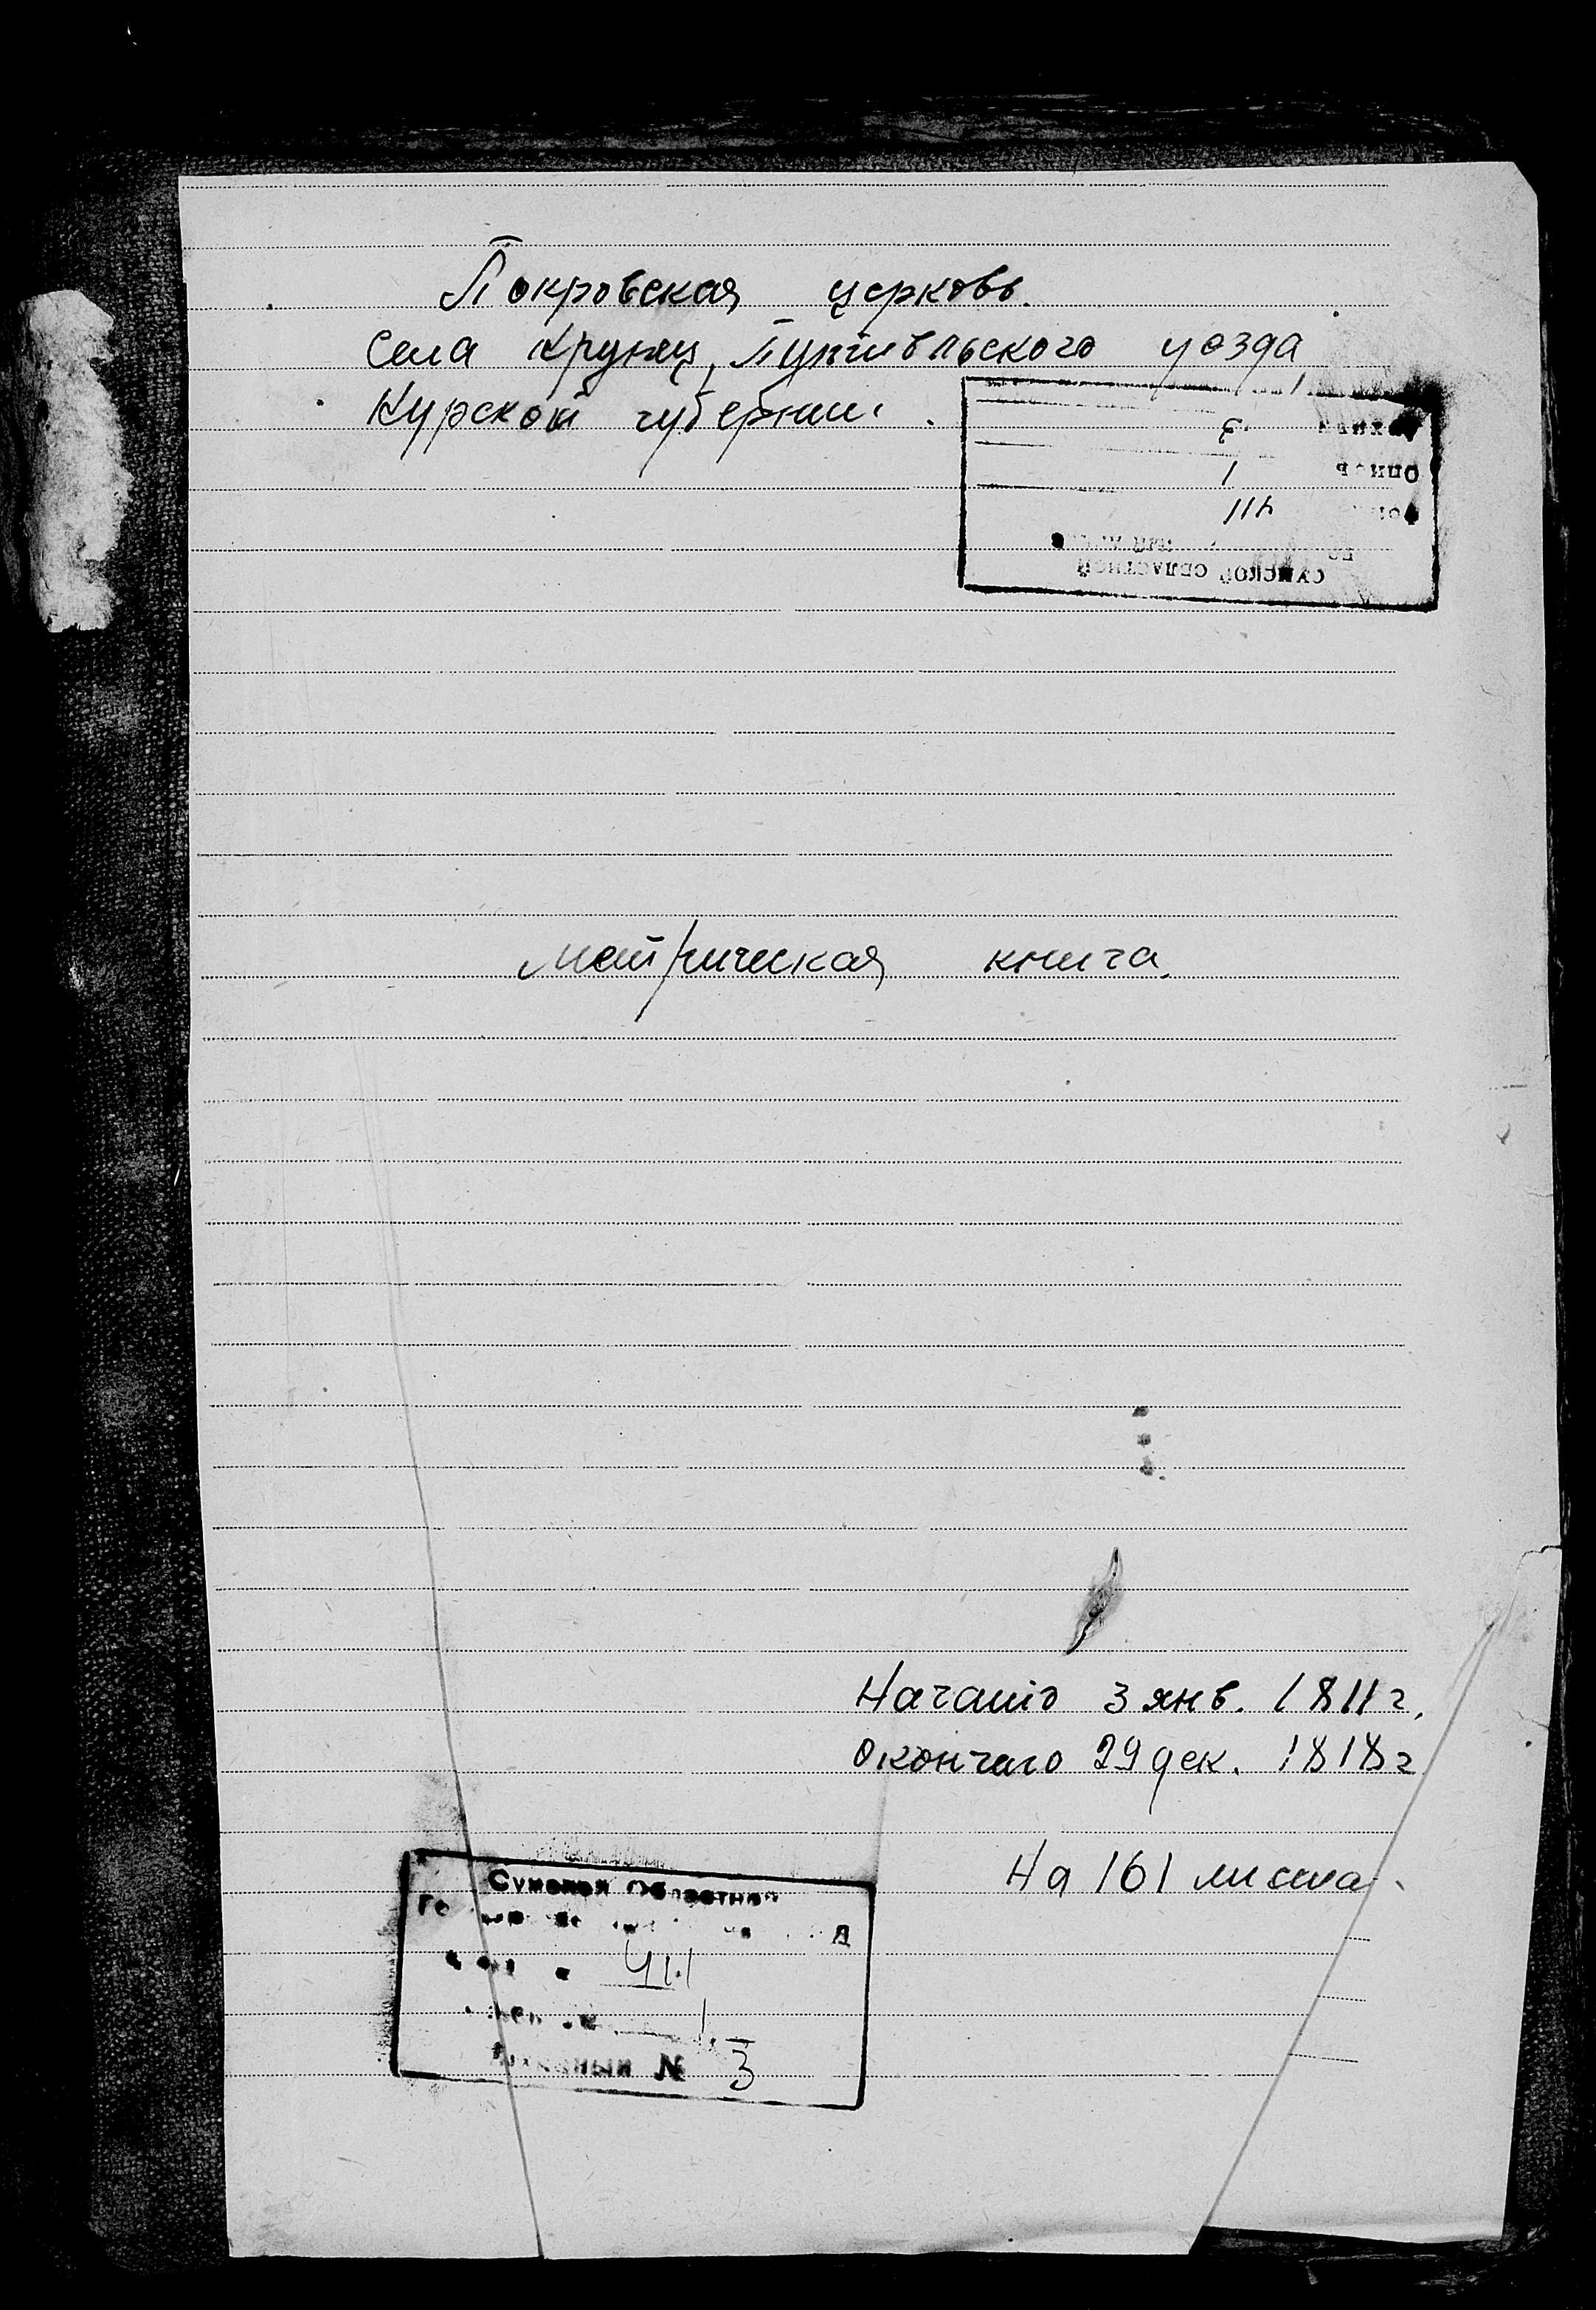 Покровская церковь.
села Крупец, Путивльского уезда
Курской губернии.
метрическая книга.
Начато 3 янв. 1811 г.
Окончено 29 дек. 1818 г
На 161 листа
Сумской Областной
411
1
№ 3